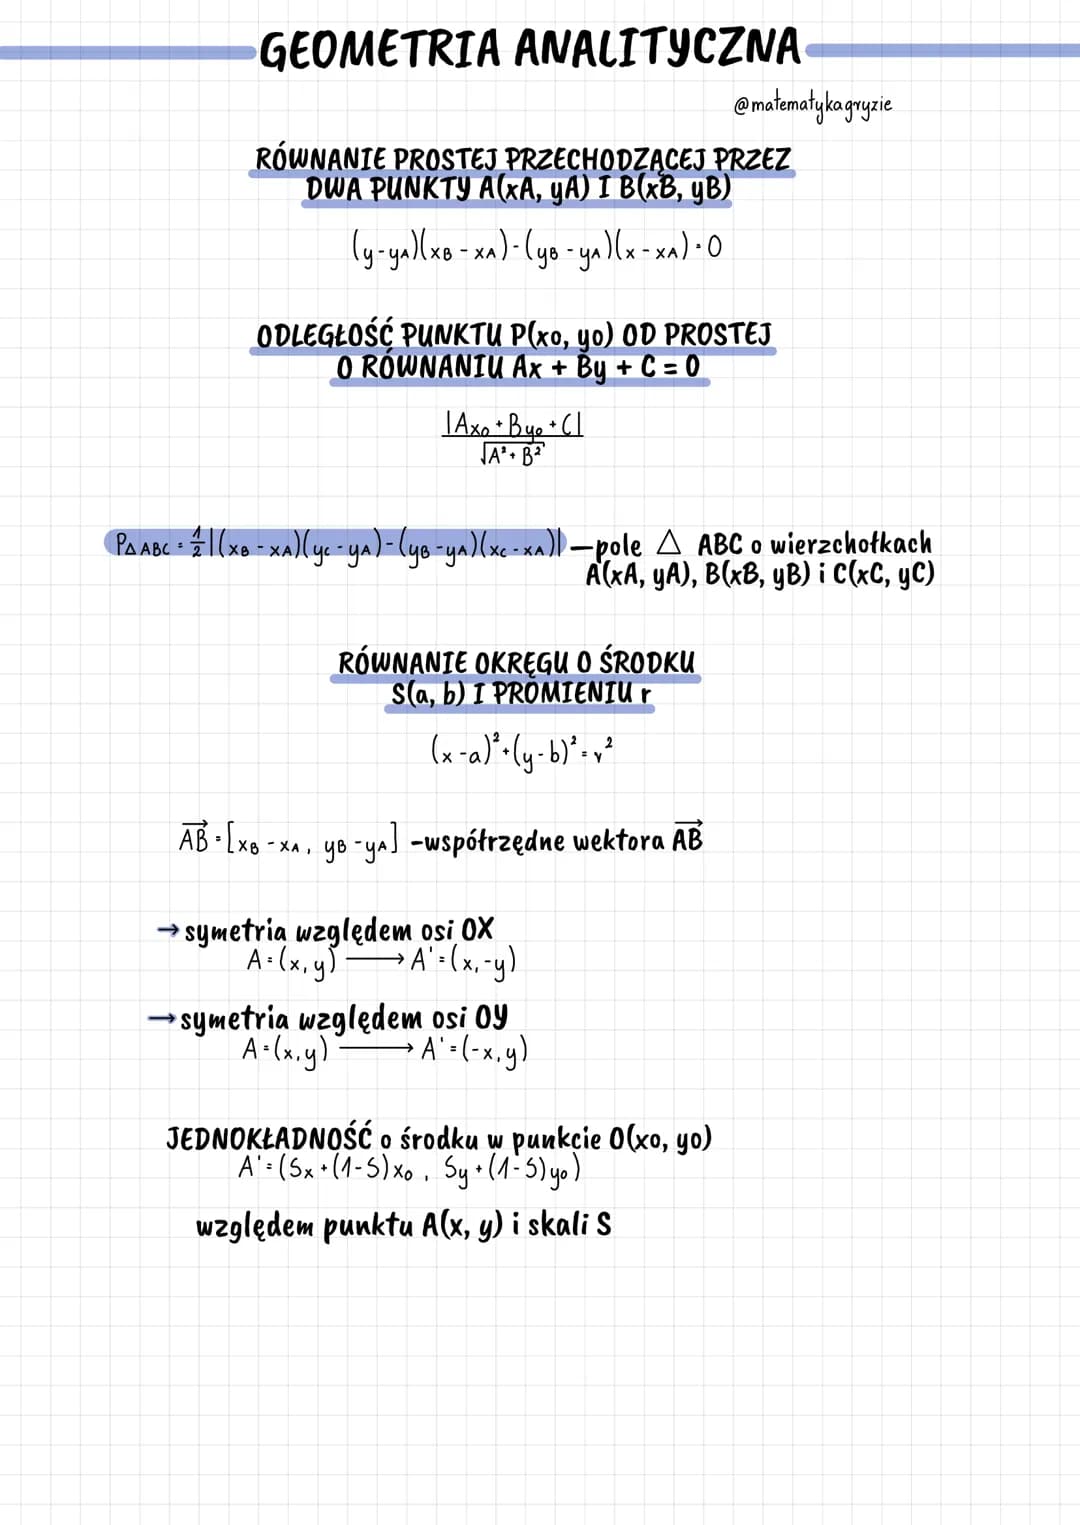 GEOMETRIA ANALITYCZNA
@matematykagryzie
RÓWNANIE PROSTEJ PRZECHODZĄCEJ PRZEZ
DWA PUNKTY A(xA, yA) I B(xB, yB)
(y-yA)(xB-xA)-(yB-yA)(x-xA)=0
ODLEGŁOŚĆ PUNKTU P(xo, yo) OD PROSTEJ
O RÓWNANIU Ax + By + C = 0
|Ax₀+By₀+C|
√A²+B²
P△ABC = ½|(xB-xA)(yC-yA)-(yB-yA)(xC-xA)| —pole △ ABC o wierzchołkach
A(xA, yA), B(xB, yB) i C(xC, yC)
RÓWNANIE OKRĘGU O ŚRODKU
S(a, b) I PROMIENIU r
(x-a)²+(y-b)²=r²
AB⃗=[xB-xA, yB-yA] -współrzędne wektora AB⃗
→symetria względem osi OX
A=(x,y) ⟶ A'=(x,-y)
→symetria względem osi OY
A=(x,y) ⟶ A'=(-x,y)
JEDNOKŁADNOŚĆ o środku w punkcie O(xo, yo)
A'=(Sx+(1-S)x₀, Sy+(1-S)y₀)
względem punktu A(x, y) i skali S